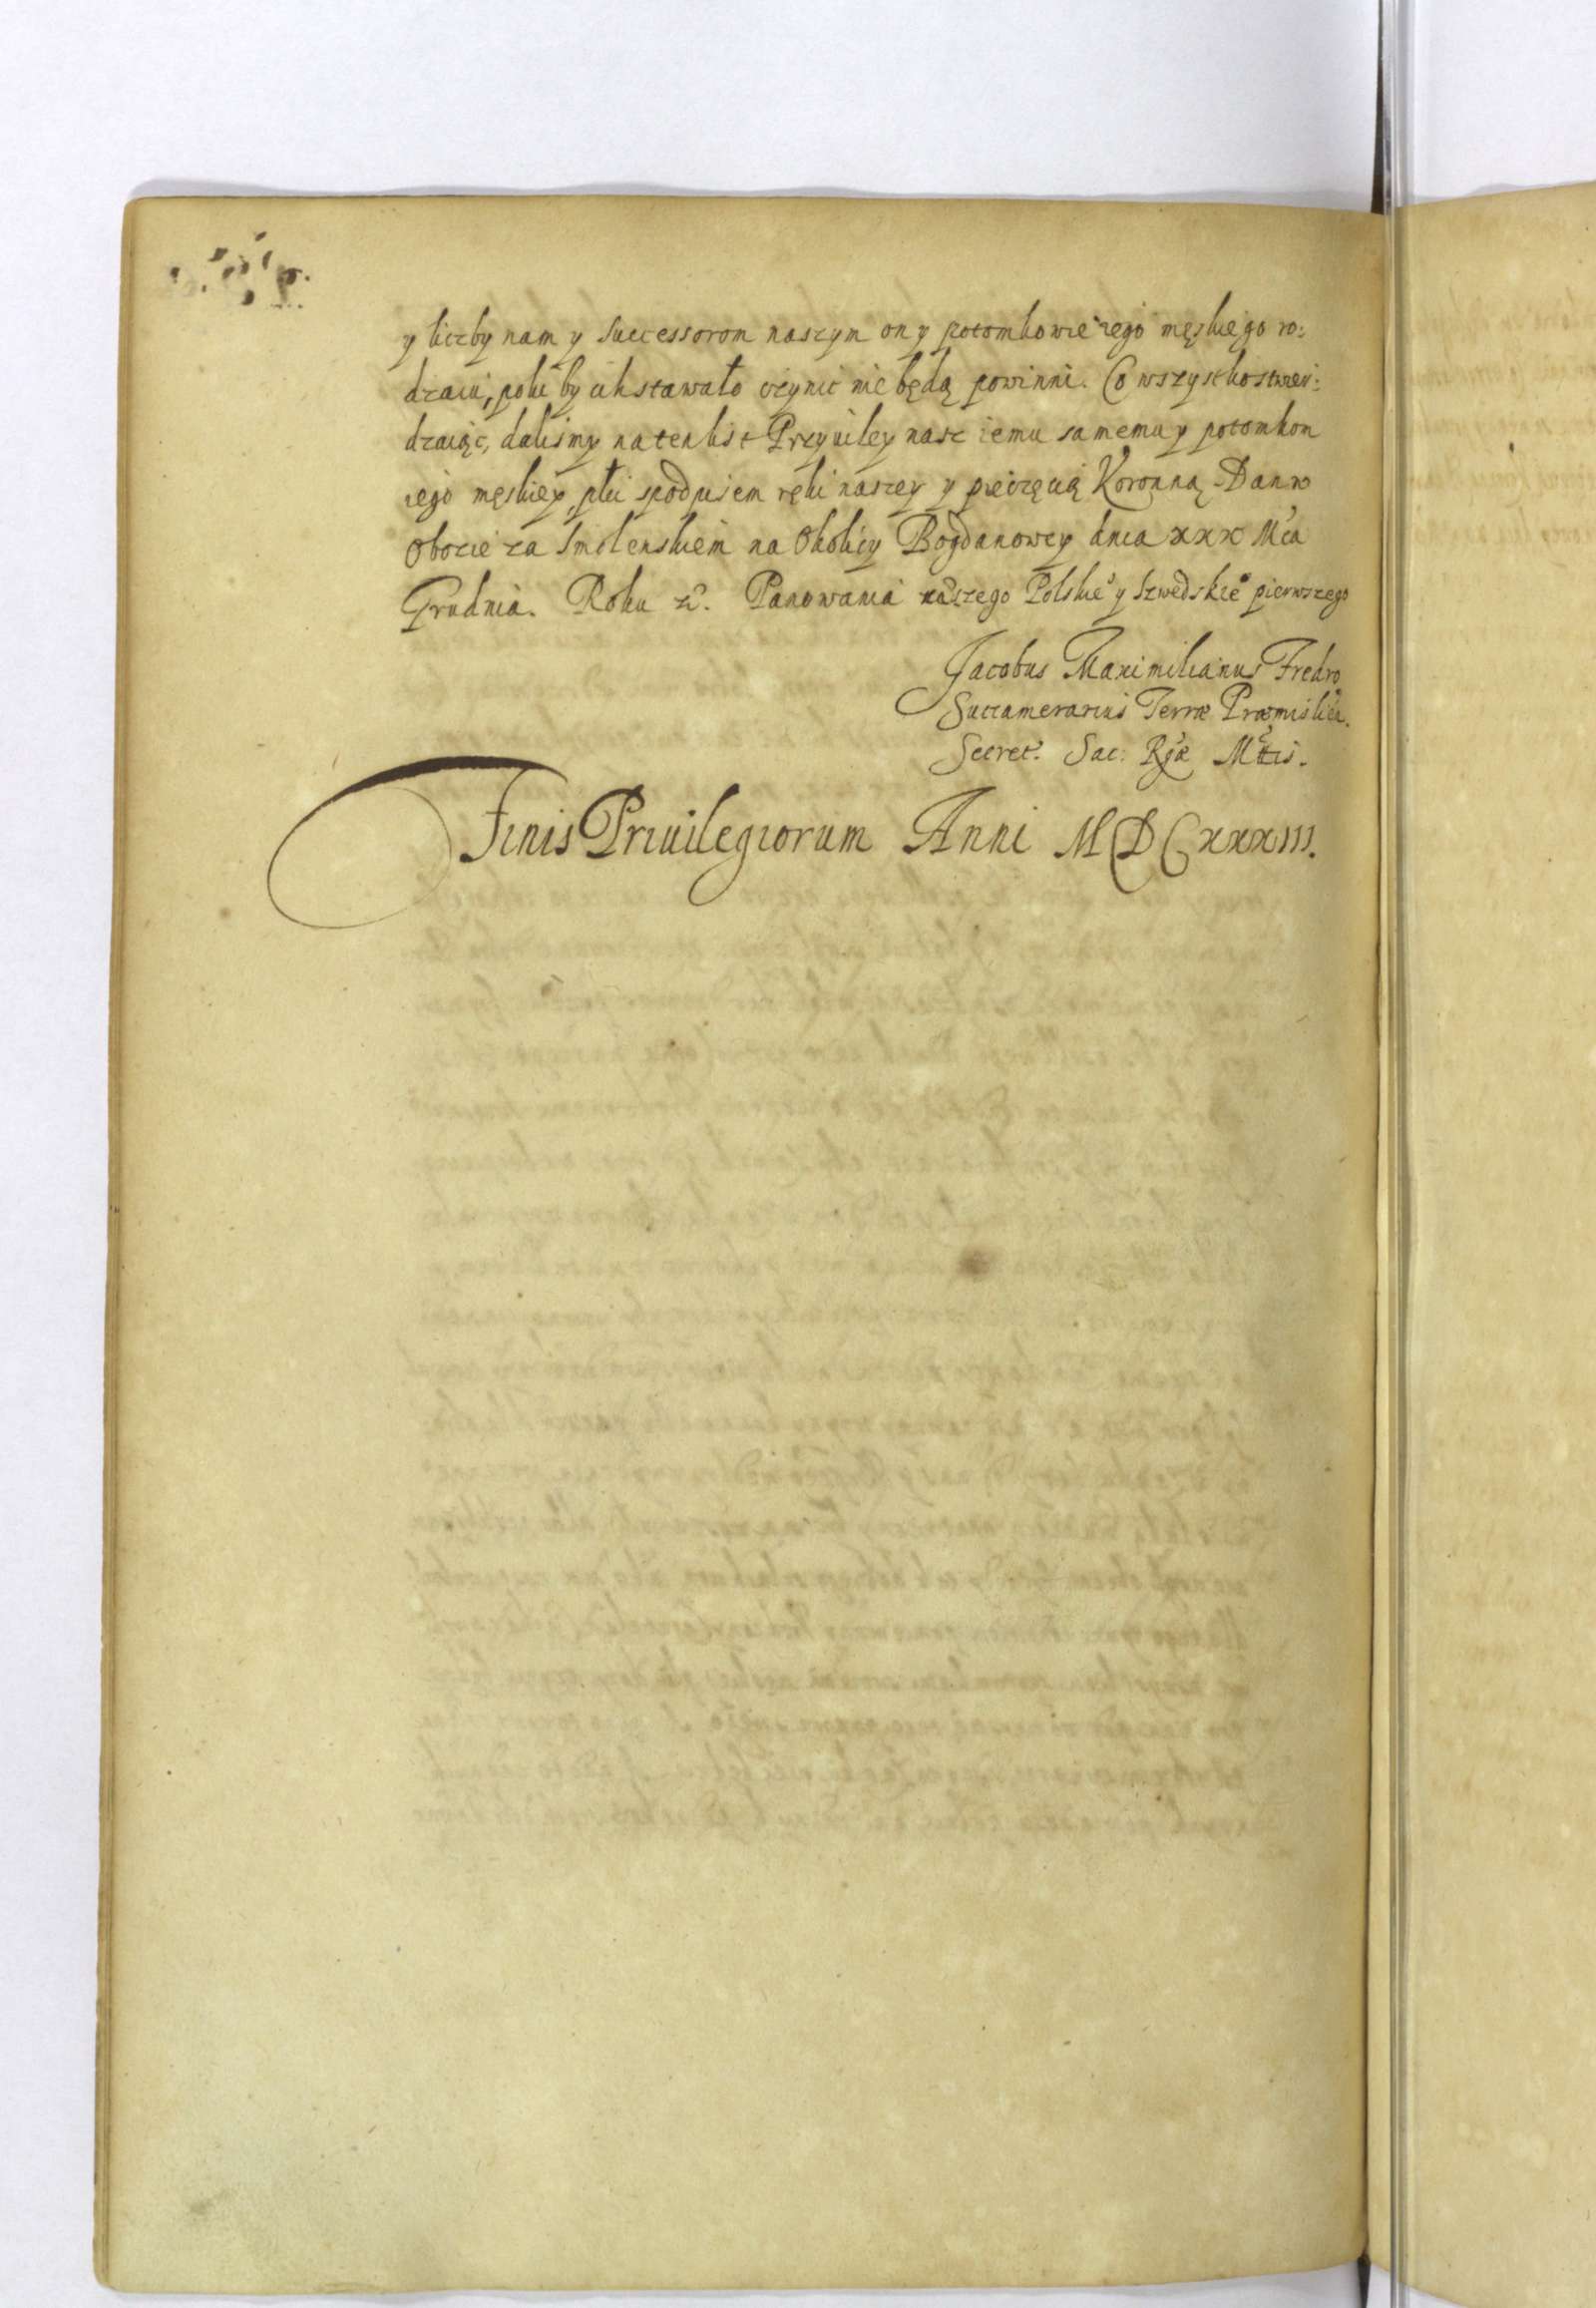 y liczby nam y Successorom naszym on y potomkowie iego męskiego ro:
dzaiu, poki by ich stawało czynic nie będą powinni. Co wszystko stwier:
dzaiąc, dalismy na ten list Przyuiley nasz iemu samemu y potomkom
iego męskiey płci s podpisem ręki naszey y pieczęcią Koronną. Dan w
Obozie za Smolenskiem na Okolicy Bogdanowey dnia xxx Mca
Grudnia. Roku Panowania naszego Polskie y Szwedskie pierwszego
Jacobus Maximilianus Fredro
Succamerarius Terræ Præmislien.
Secret. Sac: Rgæ Mttis.
Finis Priuilegiorum Anni MDCxxxiii.